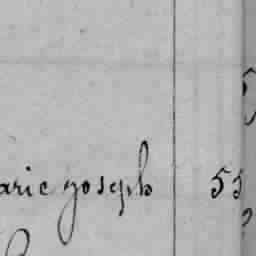 arie joseph 55